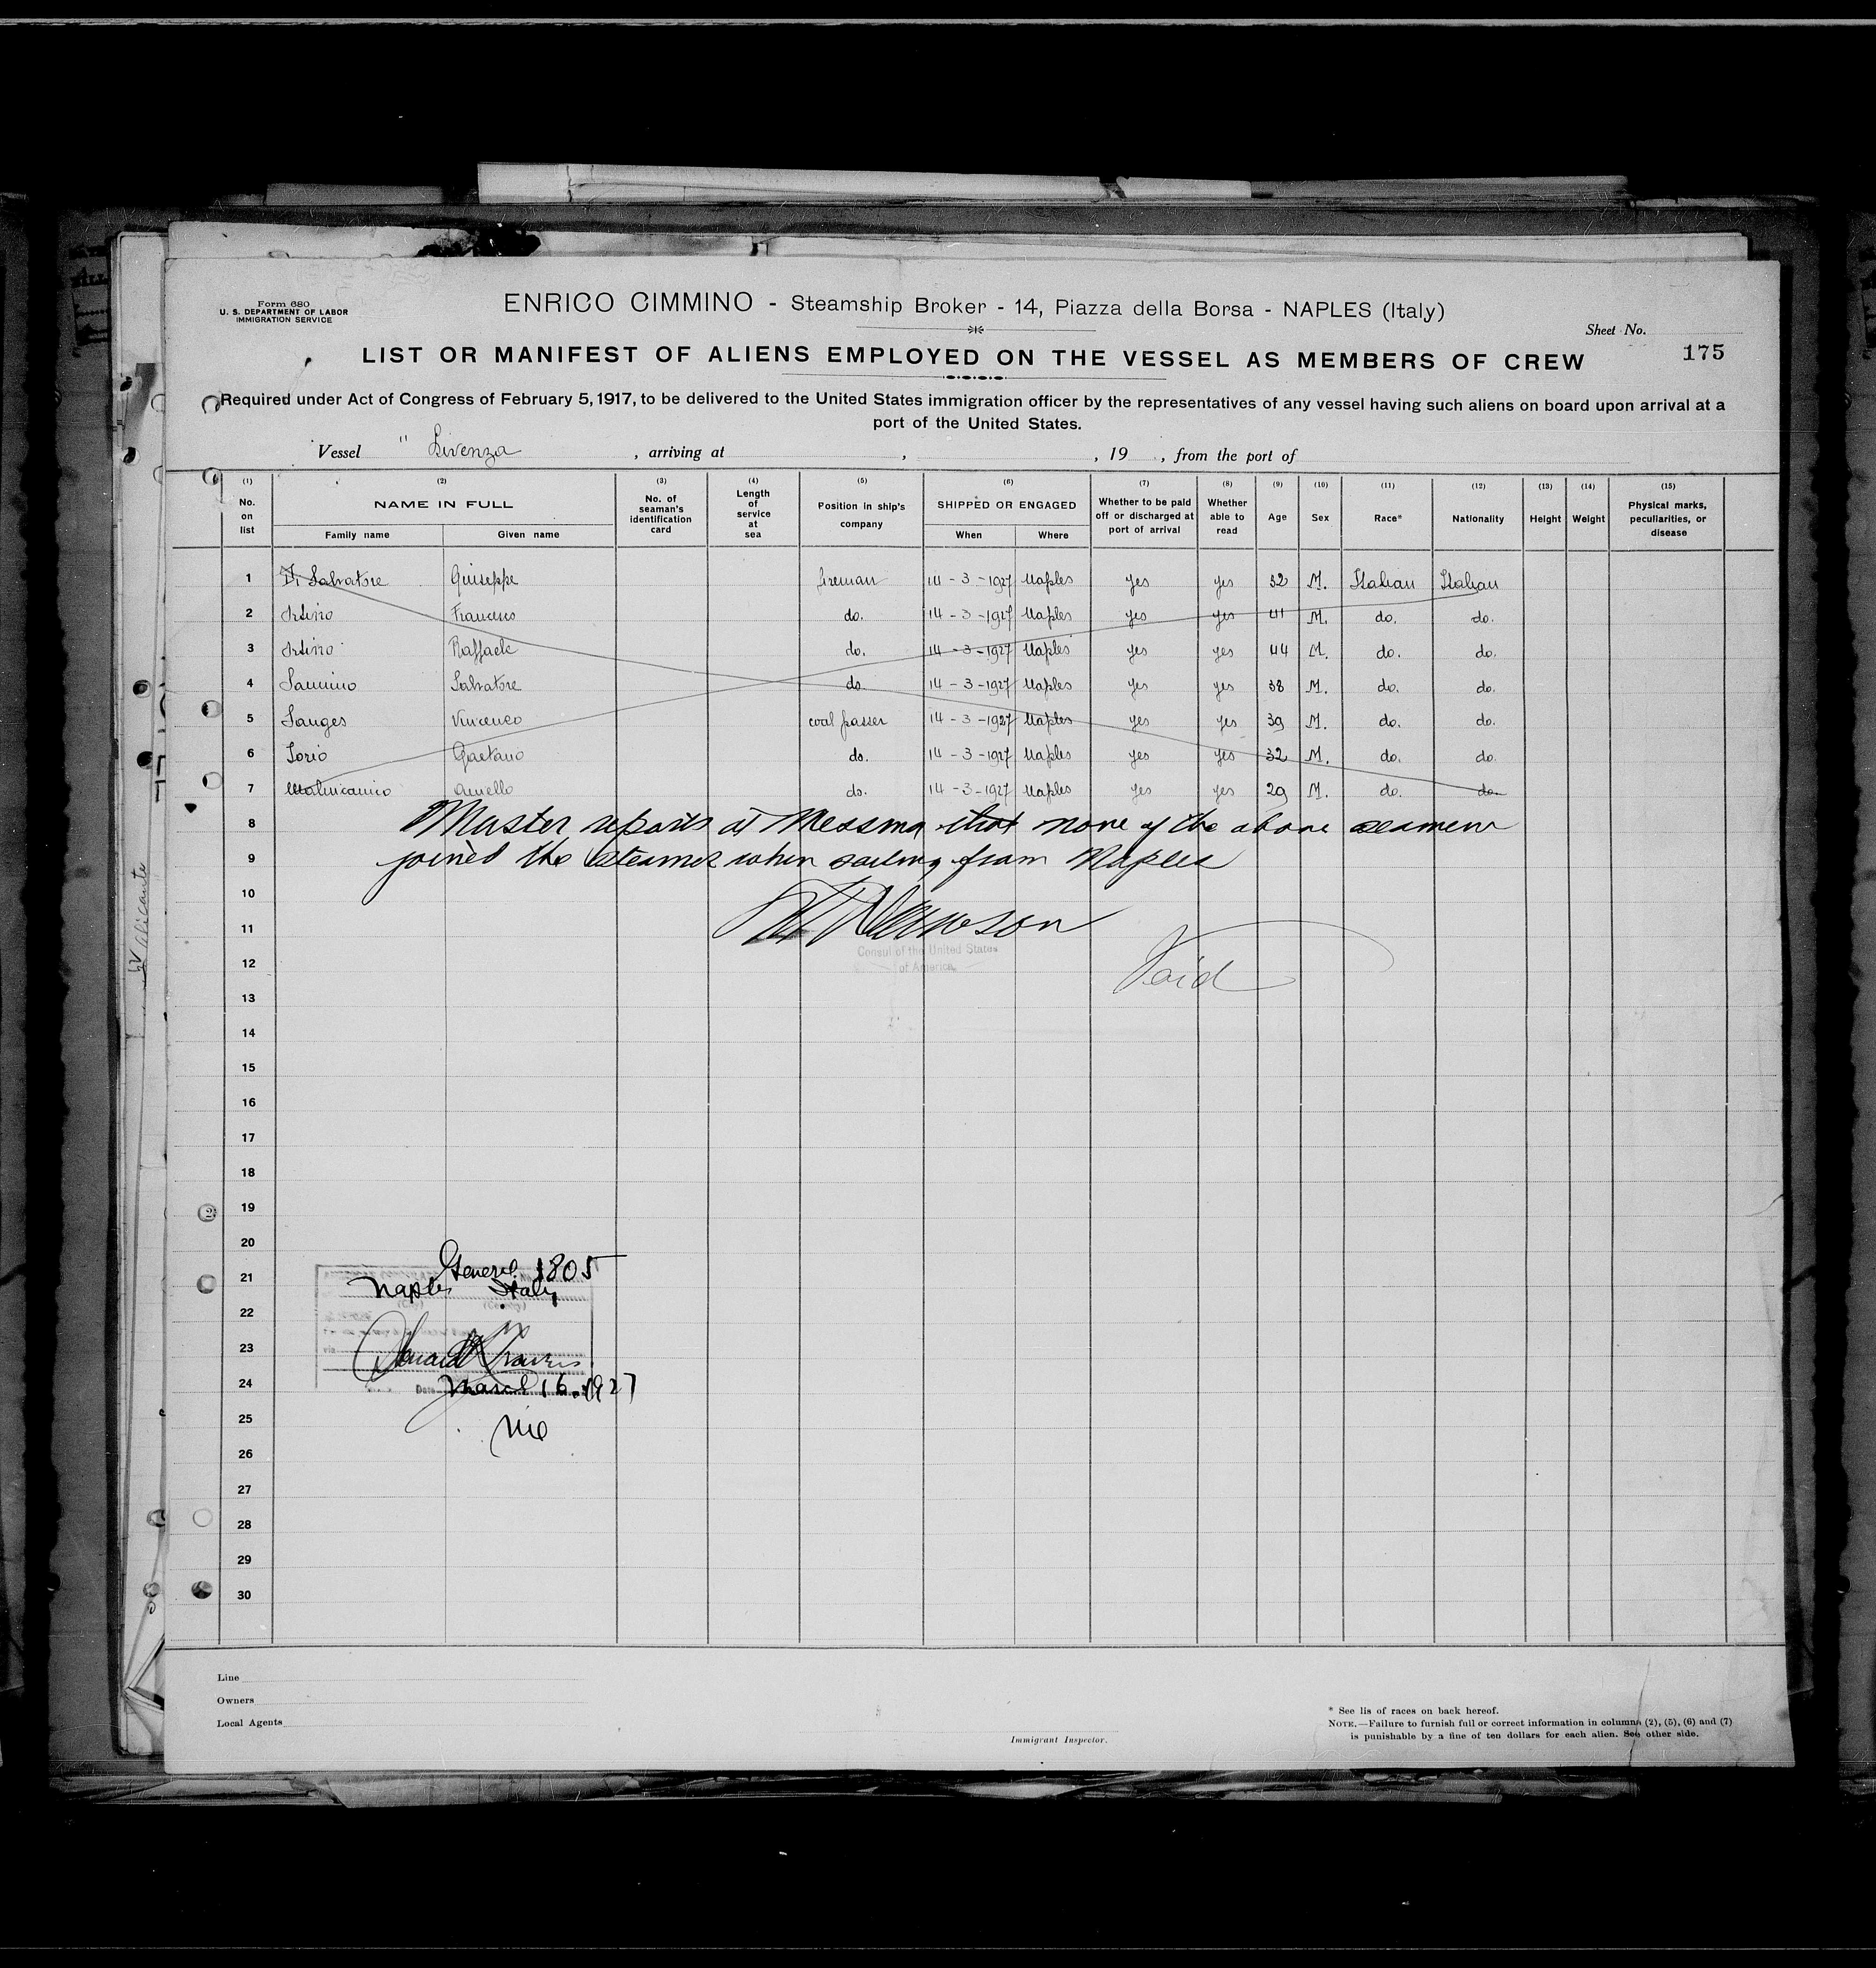 Form 680
U. S. DEPARTMENT OF LABOR
IMMIGRATION SERVICE
ENRICO CIMMINO - Steamship Broker - 14, Piazza della Borsa - NAPLES (Italy)
Sheet No.
175
LIST OR MANIFEST OF ALIENS EMPLOYED ON THE VESSEL AS MEMBERS OF CREW
Required under Act of Congress of February 5, 1917, to be delivered to the United States immigration officer by the representatives of any vessel having such aliens on board upon arrival at a
port of the United States.
Vessel " Livenza , arriving at , , 19 , from the port of
(1) (2) (3) (4) (5) (6) (7) (8) (9) (10) (11) (12) (13) (14) (15)
No. on list NAME IN FULL Family name Given name No. of seaman's identification card Length of service at sea Position in ship's company SHIPPED OR ENGAGED When Where Whether to be paid off or discharged at port of arrival Whether able to read Age Sex Race* Nationality Height Weight Physical marks, peculiarities, or disease
1 Di Salvatore Giuseppe fireman 14-3-1927 Naples yes yes 32 M. Italian Italian
2 Francesco do. 14-3-1927 Naples yes yes 41 M. do. do.
3 Raffaele do. 14-3-1927 Naples yes yes 44 M. do. do.
4 Sannino Salvatore do. 14-3-1927 Naples yes yes 38 M. do. do.
5 Sanges Vincenzo coal passer 14-3-1927 Naples yes yes 39 M. do. do.
6 Iorio Gaetano do. 14-3-1927 Naples yes yes 32 M. do. do.
7 Aniello do. 14-3-1927 Naples yes yes 29 M. do. do.
8 Master reports at Messina that none of the above seamen
9 joined the steamer when sailing from Naples
10
11
Consul of the United States
of America
12 Void
13
14
15
16
17
18
19
20
General 1805
21 Naples Italy
22
23
24 Date March 16. 1927
25
26
27
28
29
30
S/V Alicante
Line
Owners
Local Agents
Immigrant Inspector.
* See lis of races on back hereof.
NOTE.—Failure to furnish full or correct information in columns (2), (5), (6) and (7)
is punishable by a fine of ten dollars for each alien. See other side.